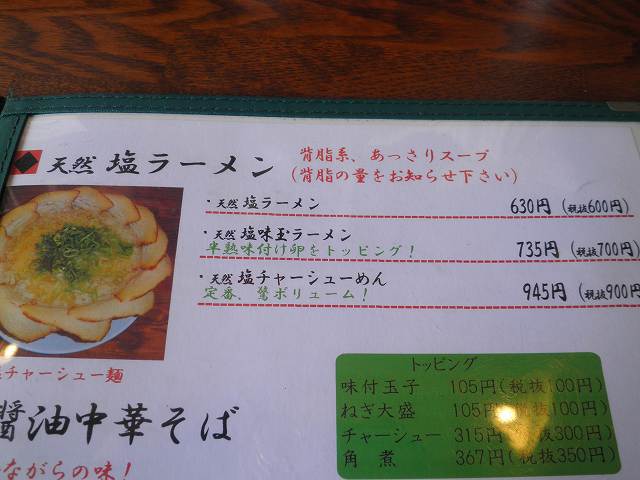 天然 塩ラーメン
背脂系、あっさりスープ
(背脂の量をお知らせ下さい)
・天然 塩ラーメン 630円 (税抜600円)
・天然 塩味玉ラーメン 735円 (税抜700円)
半熟味付け卵をトッピング!
・天然 塩チャーシューめん 945円 (税抜900円
定番、驚ボリューム!
チャーシュー麺
トッピング
味付玉子 105円(税抜100円)
ねぎ大盛 105円(税抜100円)
チャーシュー 315円(税抜300円)
角煮 367円(税抜350円)
醤油中華そば
ながらの味!